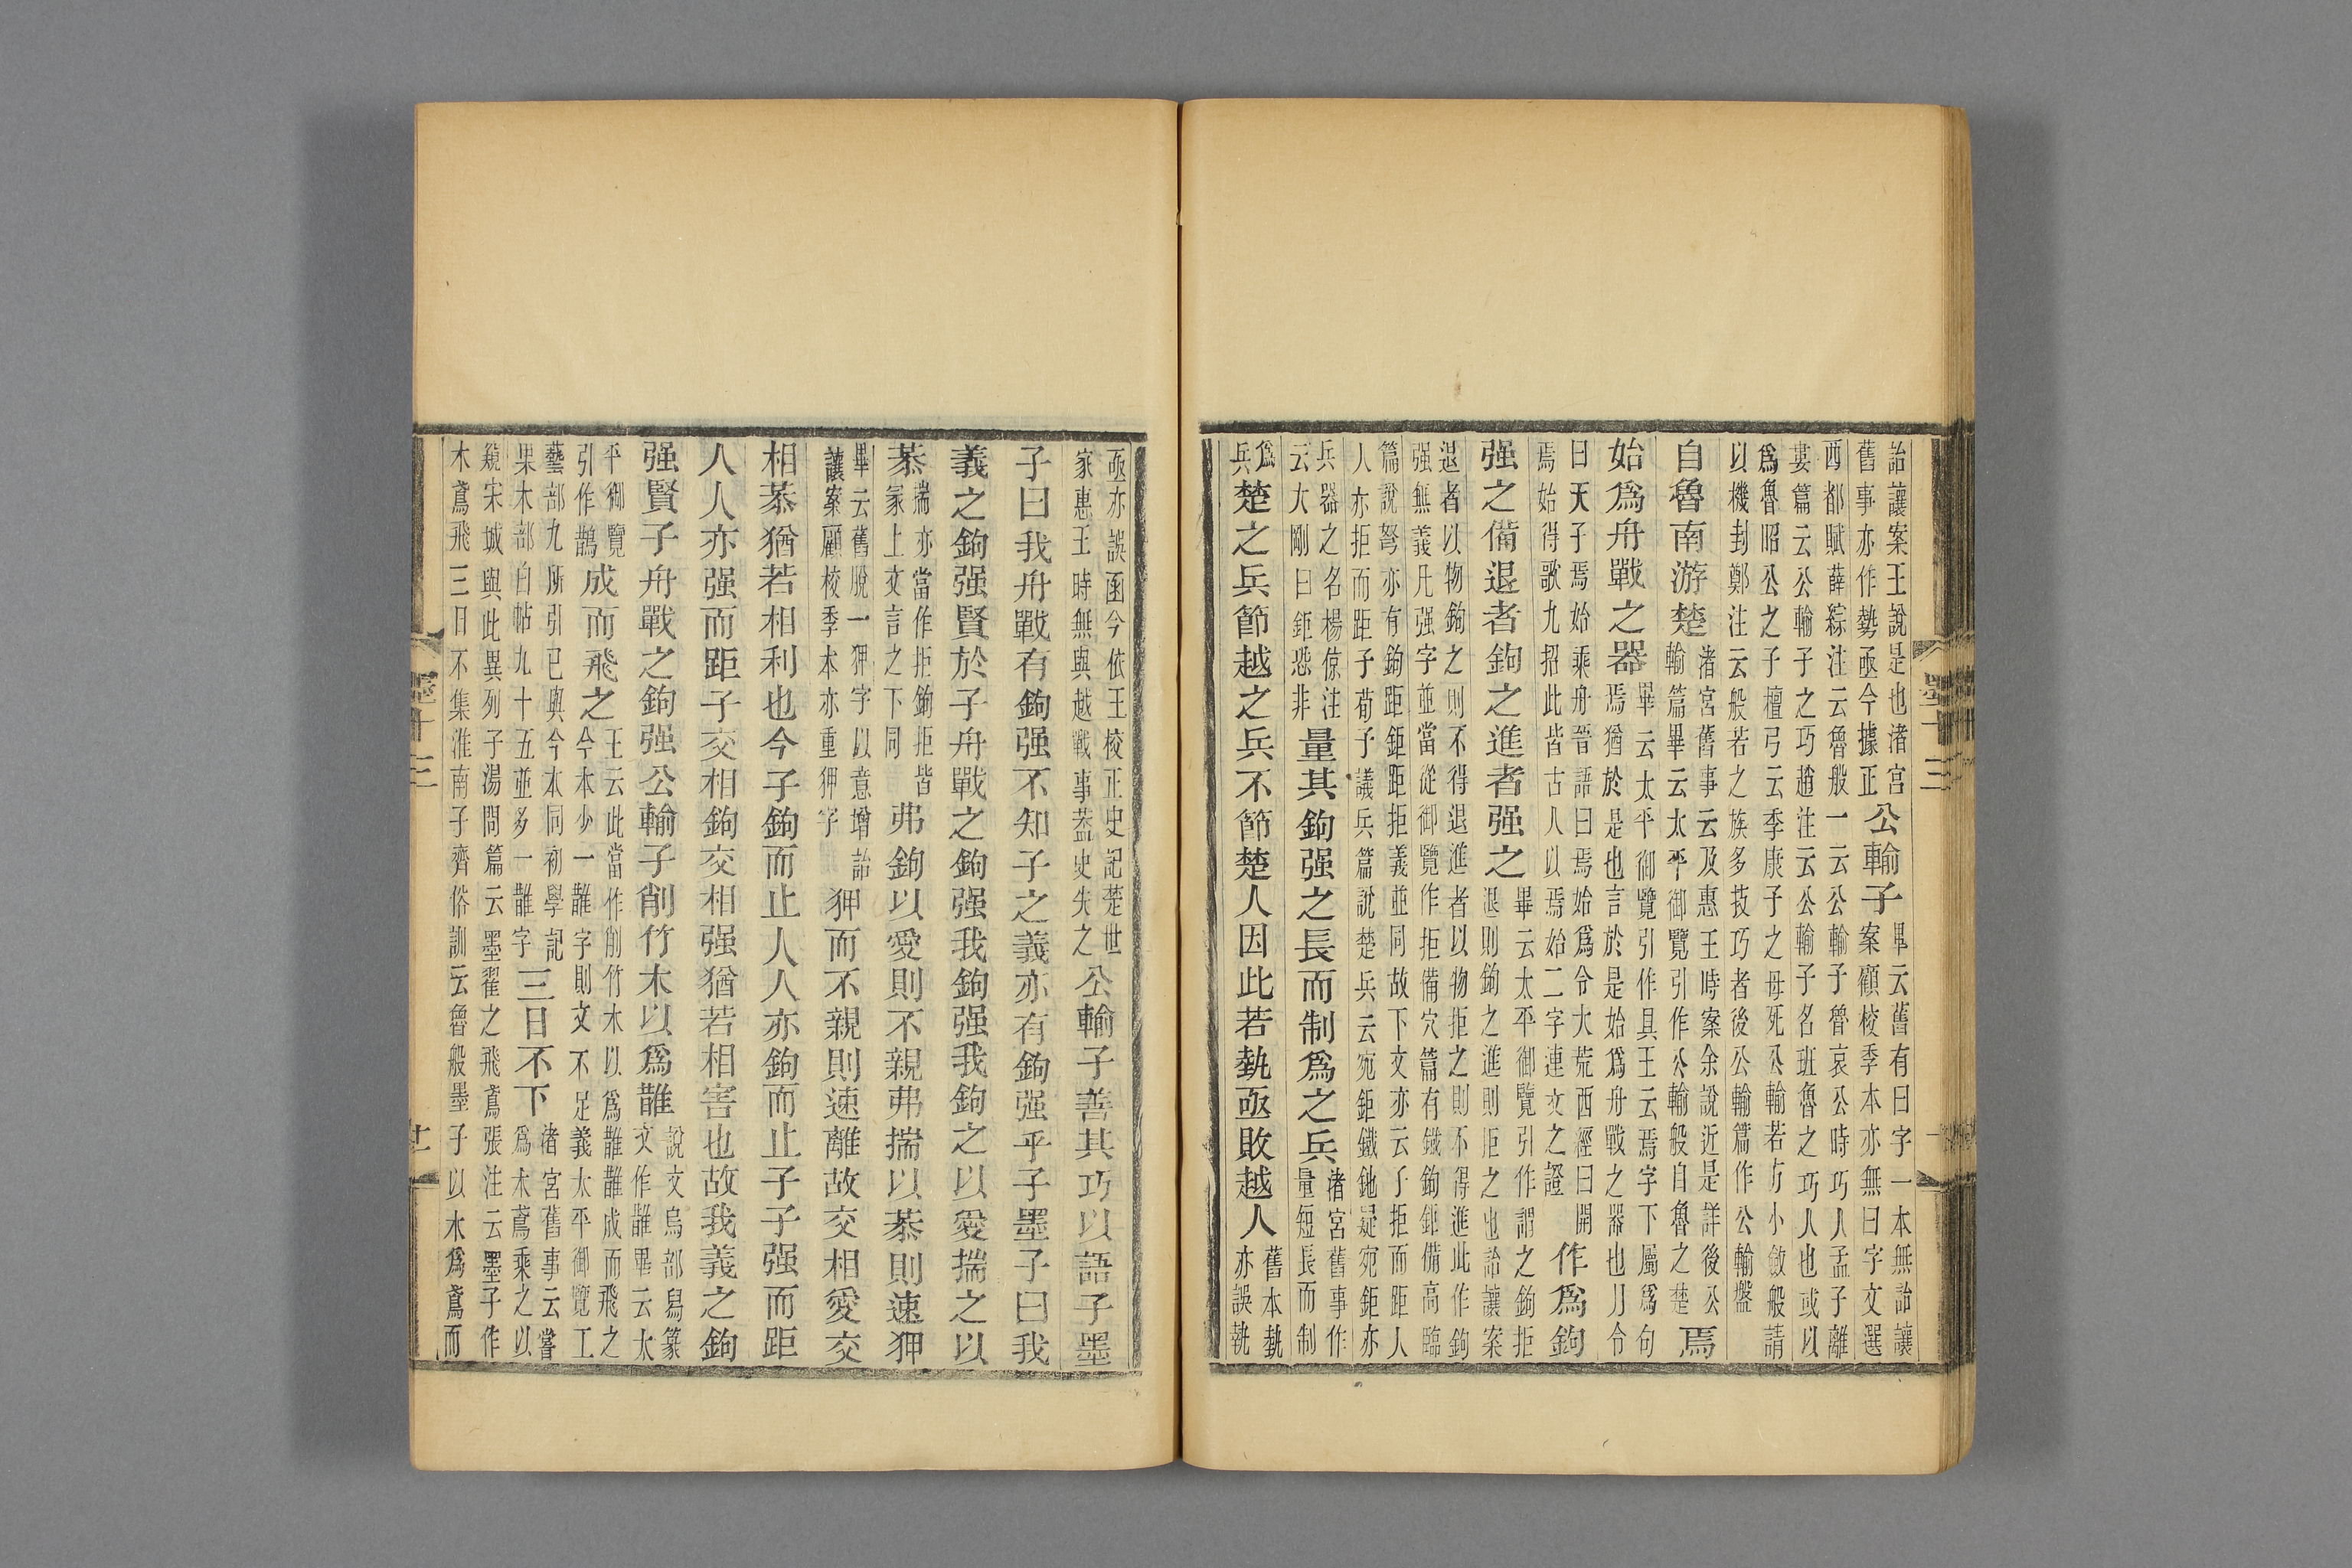 詒讓案王說是也渚宮舊事亦作勢亟今據正公輸子畢云舊有曰字一本無詒讓案顧校季本亦無曰字文選
西都賦薛綜注云魯般一云公輸子魯哀公時巧人孟子離婁篇云公輸子之巧趙注云公輸子名班魯之巧人也或以
爲魯昭公之子檀弓云季康子之母死公輸若方小斂般請以機封鄭注云般若之族多技巧者後公輸篇作公輸盤
自魯南游楚渚宮舊事云及惠王時案余說近是詳後公輸篇畢云太平御覽引作公輸般自魯之楚焉
始爲舟戰之器畢云太平御覽引作具王云焉字下屬爲句焉猶於是也言於是始爲舟戰之器也月令
曰天子焉始乘舟晉語曰焉始爲令大荒西經曰開焉始得歌九招此皆古人以焉始二字連文之證作爲鉤
强之備退者鉤之進者强之畢云太平御覽引作謂之鉤拒退則鉤之進則拒之也詒讓案
退者以物鉤之則不得退進者以物拒之則不得進此作鉤强無義凡强字並當從御覽作拒備穴篇有鐵鉤鉅備高臨
篇說弩亦有鉤距鉅距拒義並同故下文亦云子拒而距人人亦拒而距子荀子議兵篇說楚兵云宛鉅鐵釶疑宛鉅亦
兵器之名楊倞注云大剛曰鉅恐非量其鉤强之長而制爲之兵渚宮舊事作量短長而制
爲兵楚之兵節越之兵不節楚人因此若埶亟敗越人舊本埶亦誤執
亟亦誤函今依王校正史記楚世家惠王時無與越戰事蓋史失之公輸子善其巧以語子墨
子曰我舟戰有鉤强不知子之義亦有鉤强乎子墨子曰我
義之鉤强賢於子舟戰之鉤强我鉤强我鉤之以愛揣之以
恭揣亦當作拒鉤拒皆家上文言之下同弗鉤以愛則不親弗揣以恭則速狎
畢云舊脫一狎字以意增詒讓案顧校季本亦重狎字狎而不親則速離故交相愛交
相恭猶若相利也今子鉤而止人人亦鉤而止子子强而距
人人亦强而距子交相鉤交相强猶若相害也故我義之鉤
强賢子舟戰之鉤强公輸子削竹木以爲䧿說文烏部舄篆文作䧿畢云太
平御覽引作鵲成而飛之王云此當作削竹木以爲䧿䧿成而飛之今本少一䧿字則文不足義太平御覽工
藝部九所引已與今本同初學記果木部白帖九十五並多一䧿字三日不下渚宮舊事云嘗爲木鳶乘之以
窺宋城與此異列子湯問篇云墨翟之飛鳶張注云墨子作木鳶飛三日不集淮南子齊俗訓云魯般墨子以木爲鳶而
墨十三
廿一